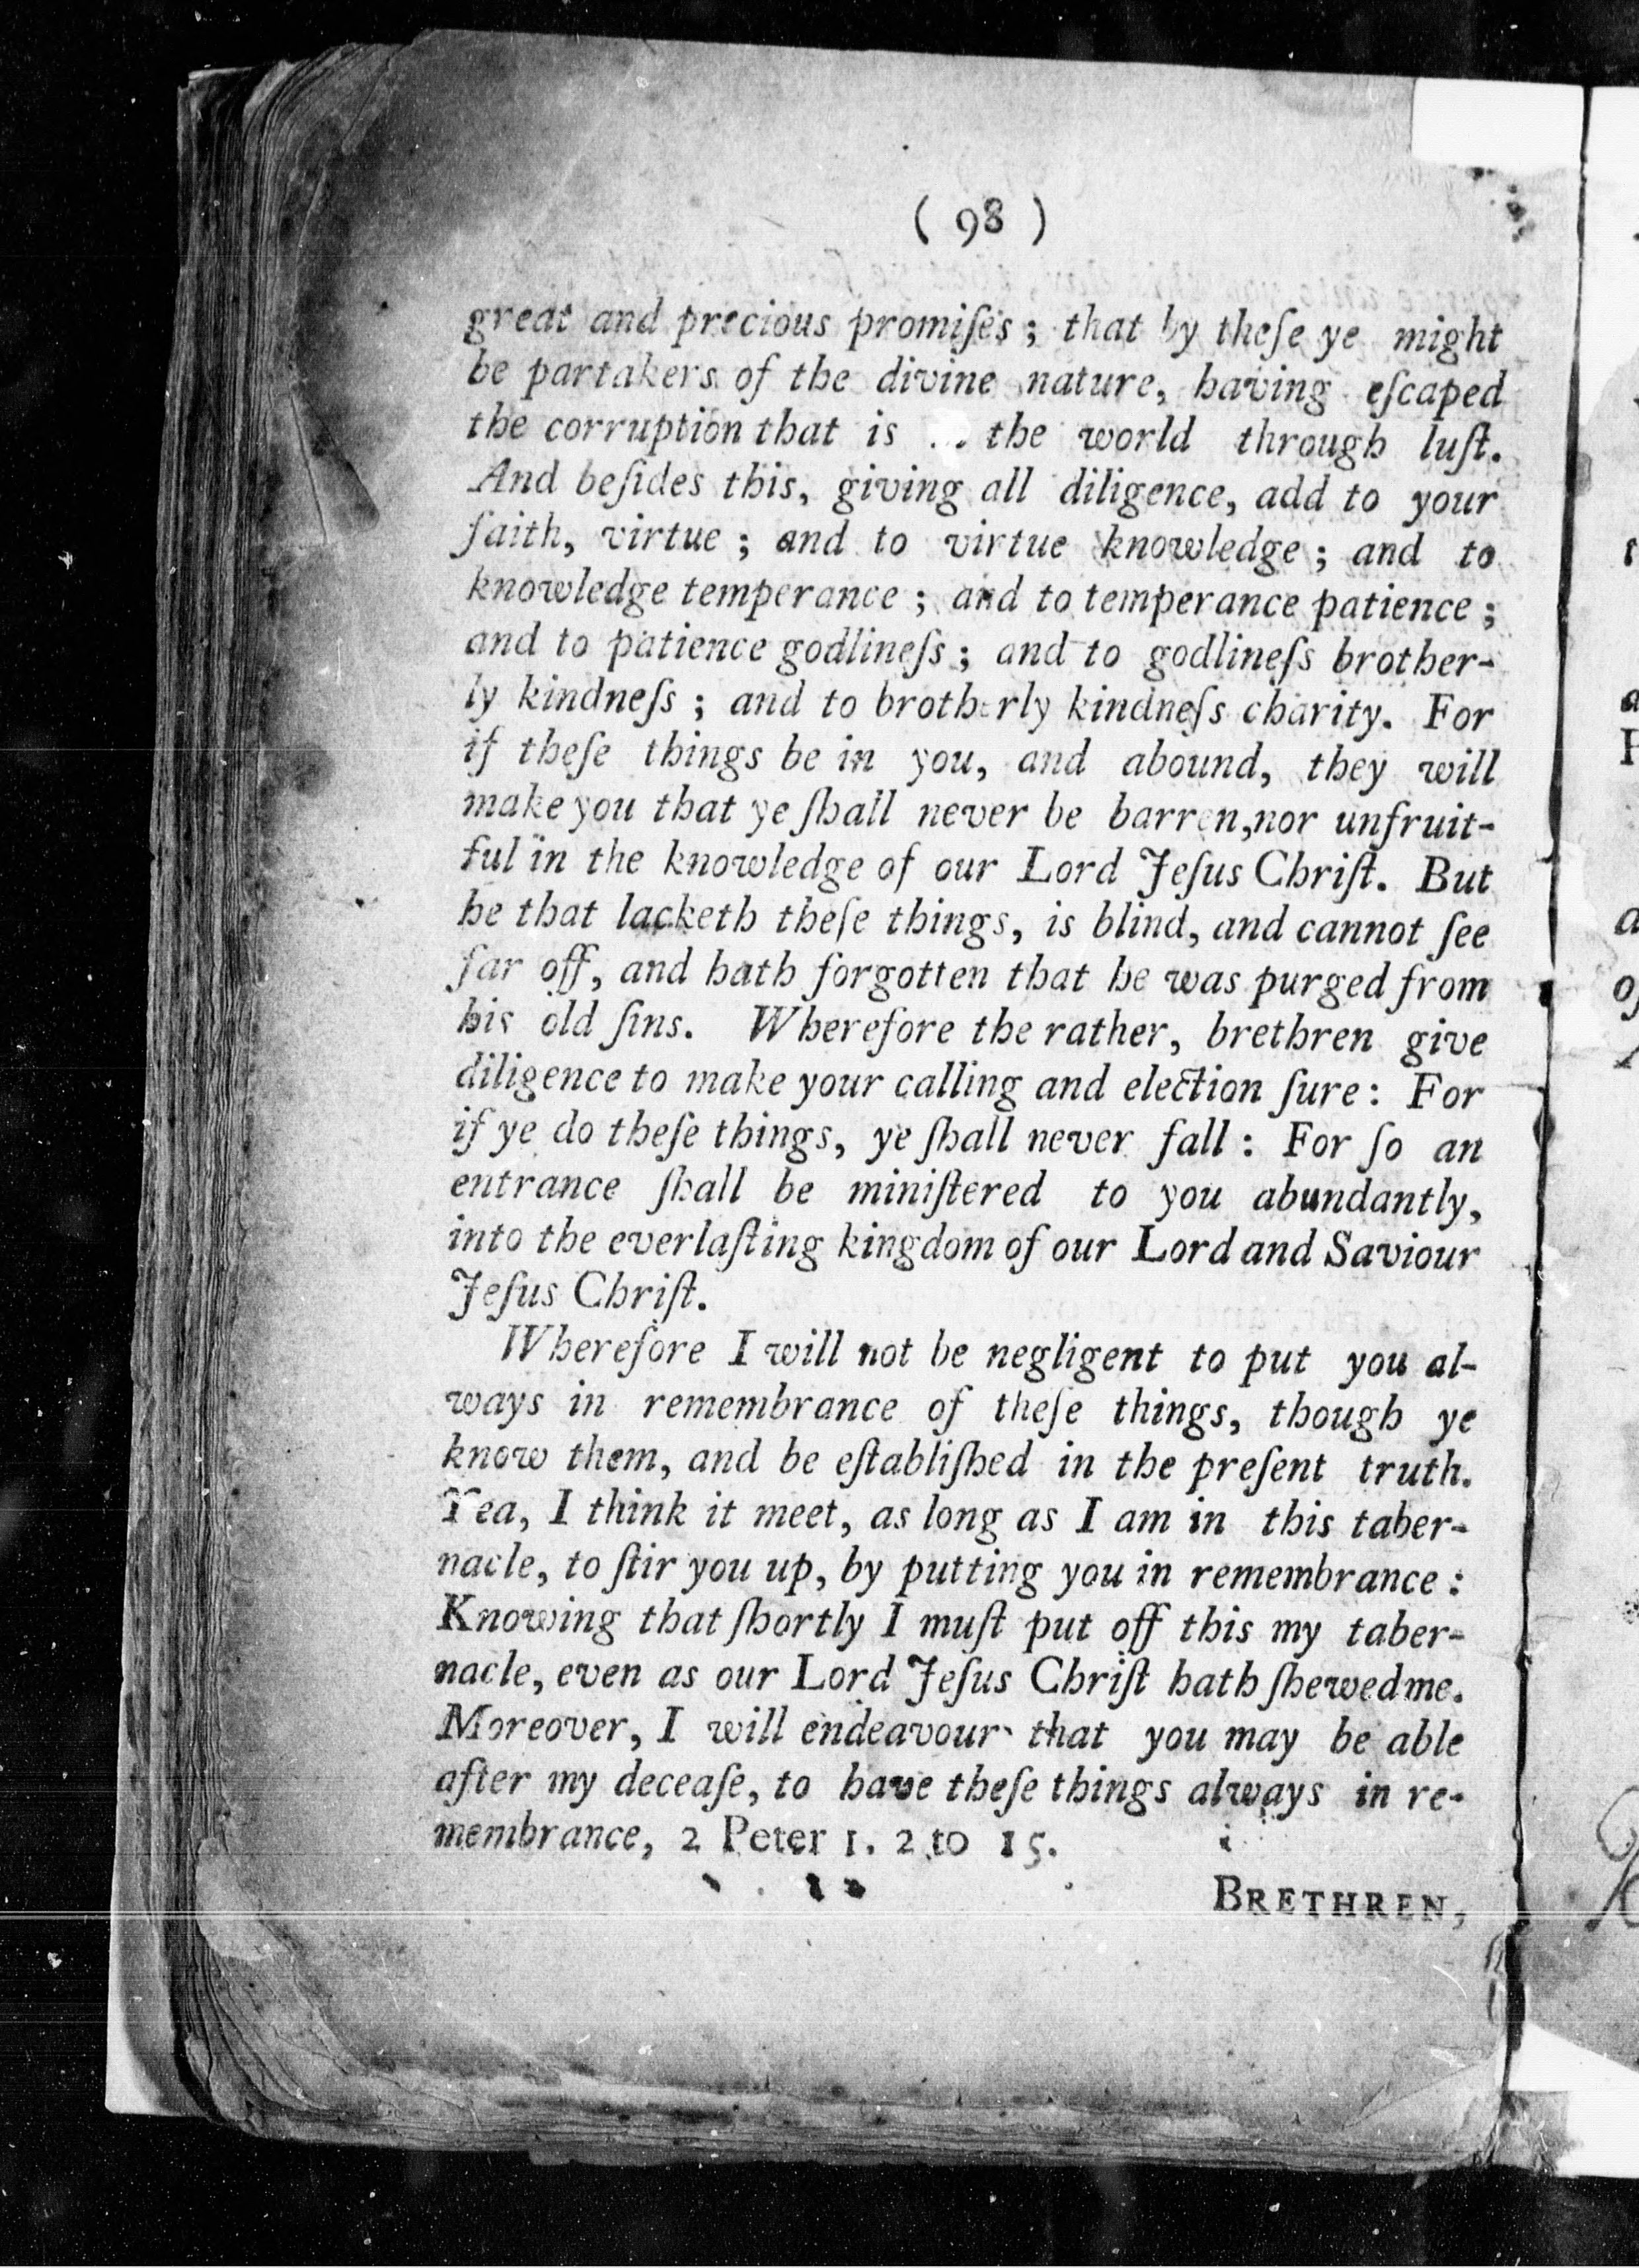 ( 98 )
great and precious promiſes ; that by theſe ye might
be partakers of the divine nature, having eſcaped
the corruption that is the world through luſt.
And beſides this, giving all diligence, add to your
faith, virtue ; and to virtue knowledge ; and to
knowledge temperance ; and to temperance patience ;
and to patience godlineſs ; and to godlineſs brother-
ly kindneſs ; and to brotherly kindneſs charity. For
if theſe things be in you, and abound, they will
make you that ye ſhall never be barren, nor unfruit-
ful in the knowledge of our Lord Jeſus Chriſt. But
he that lacketh theſe things, is blind, and cannot ſee
far off, and hath forgotten that he was purged from
his old ſins. Wherefore the rather, brethren give
diligence to make your calling and election ſure : For
if ye do theſe things, ye ſhall never fall : For ſo an
entrance ſhall be miniſtered to you abundantly,
into the everlaſting kingdom of our Lord and Saviour
Jeſus Chriſt.
Wherefore I will not be negligent to put you al-
ways in remembrance of theſe things, though ye
know them, and be eſtabliſhed in the preſent truth.
Yea, I think it meet, as long as I am in this taber-
nacle, to ſtir you up, by putting you in remembrance :
Knowing that ſhortly I muſt put off this my taber-
nacle, even as our Lord Jeſus Chriſt hath ſhewed me.
Moreover, I will endeavour that you may be able
after my deceaſe, to have theſe things always in re-
membrance, 2 Peter 1. 2 to 15.
BRETHREN,